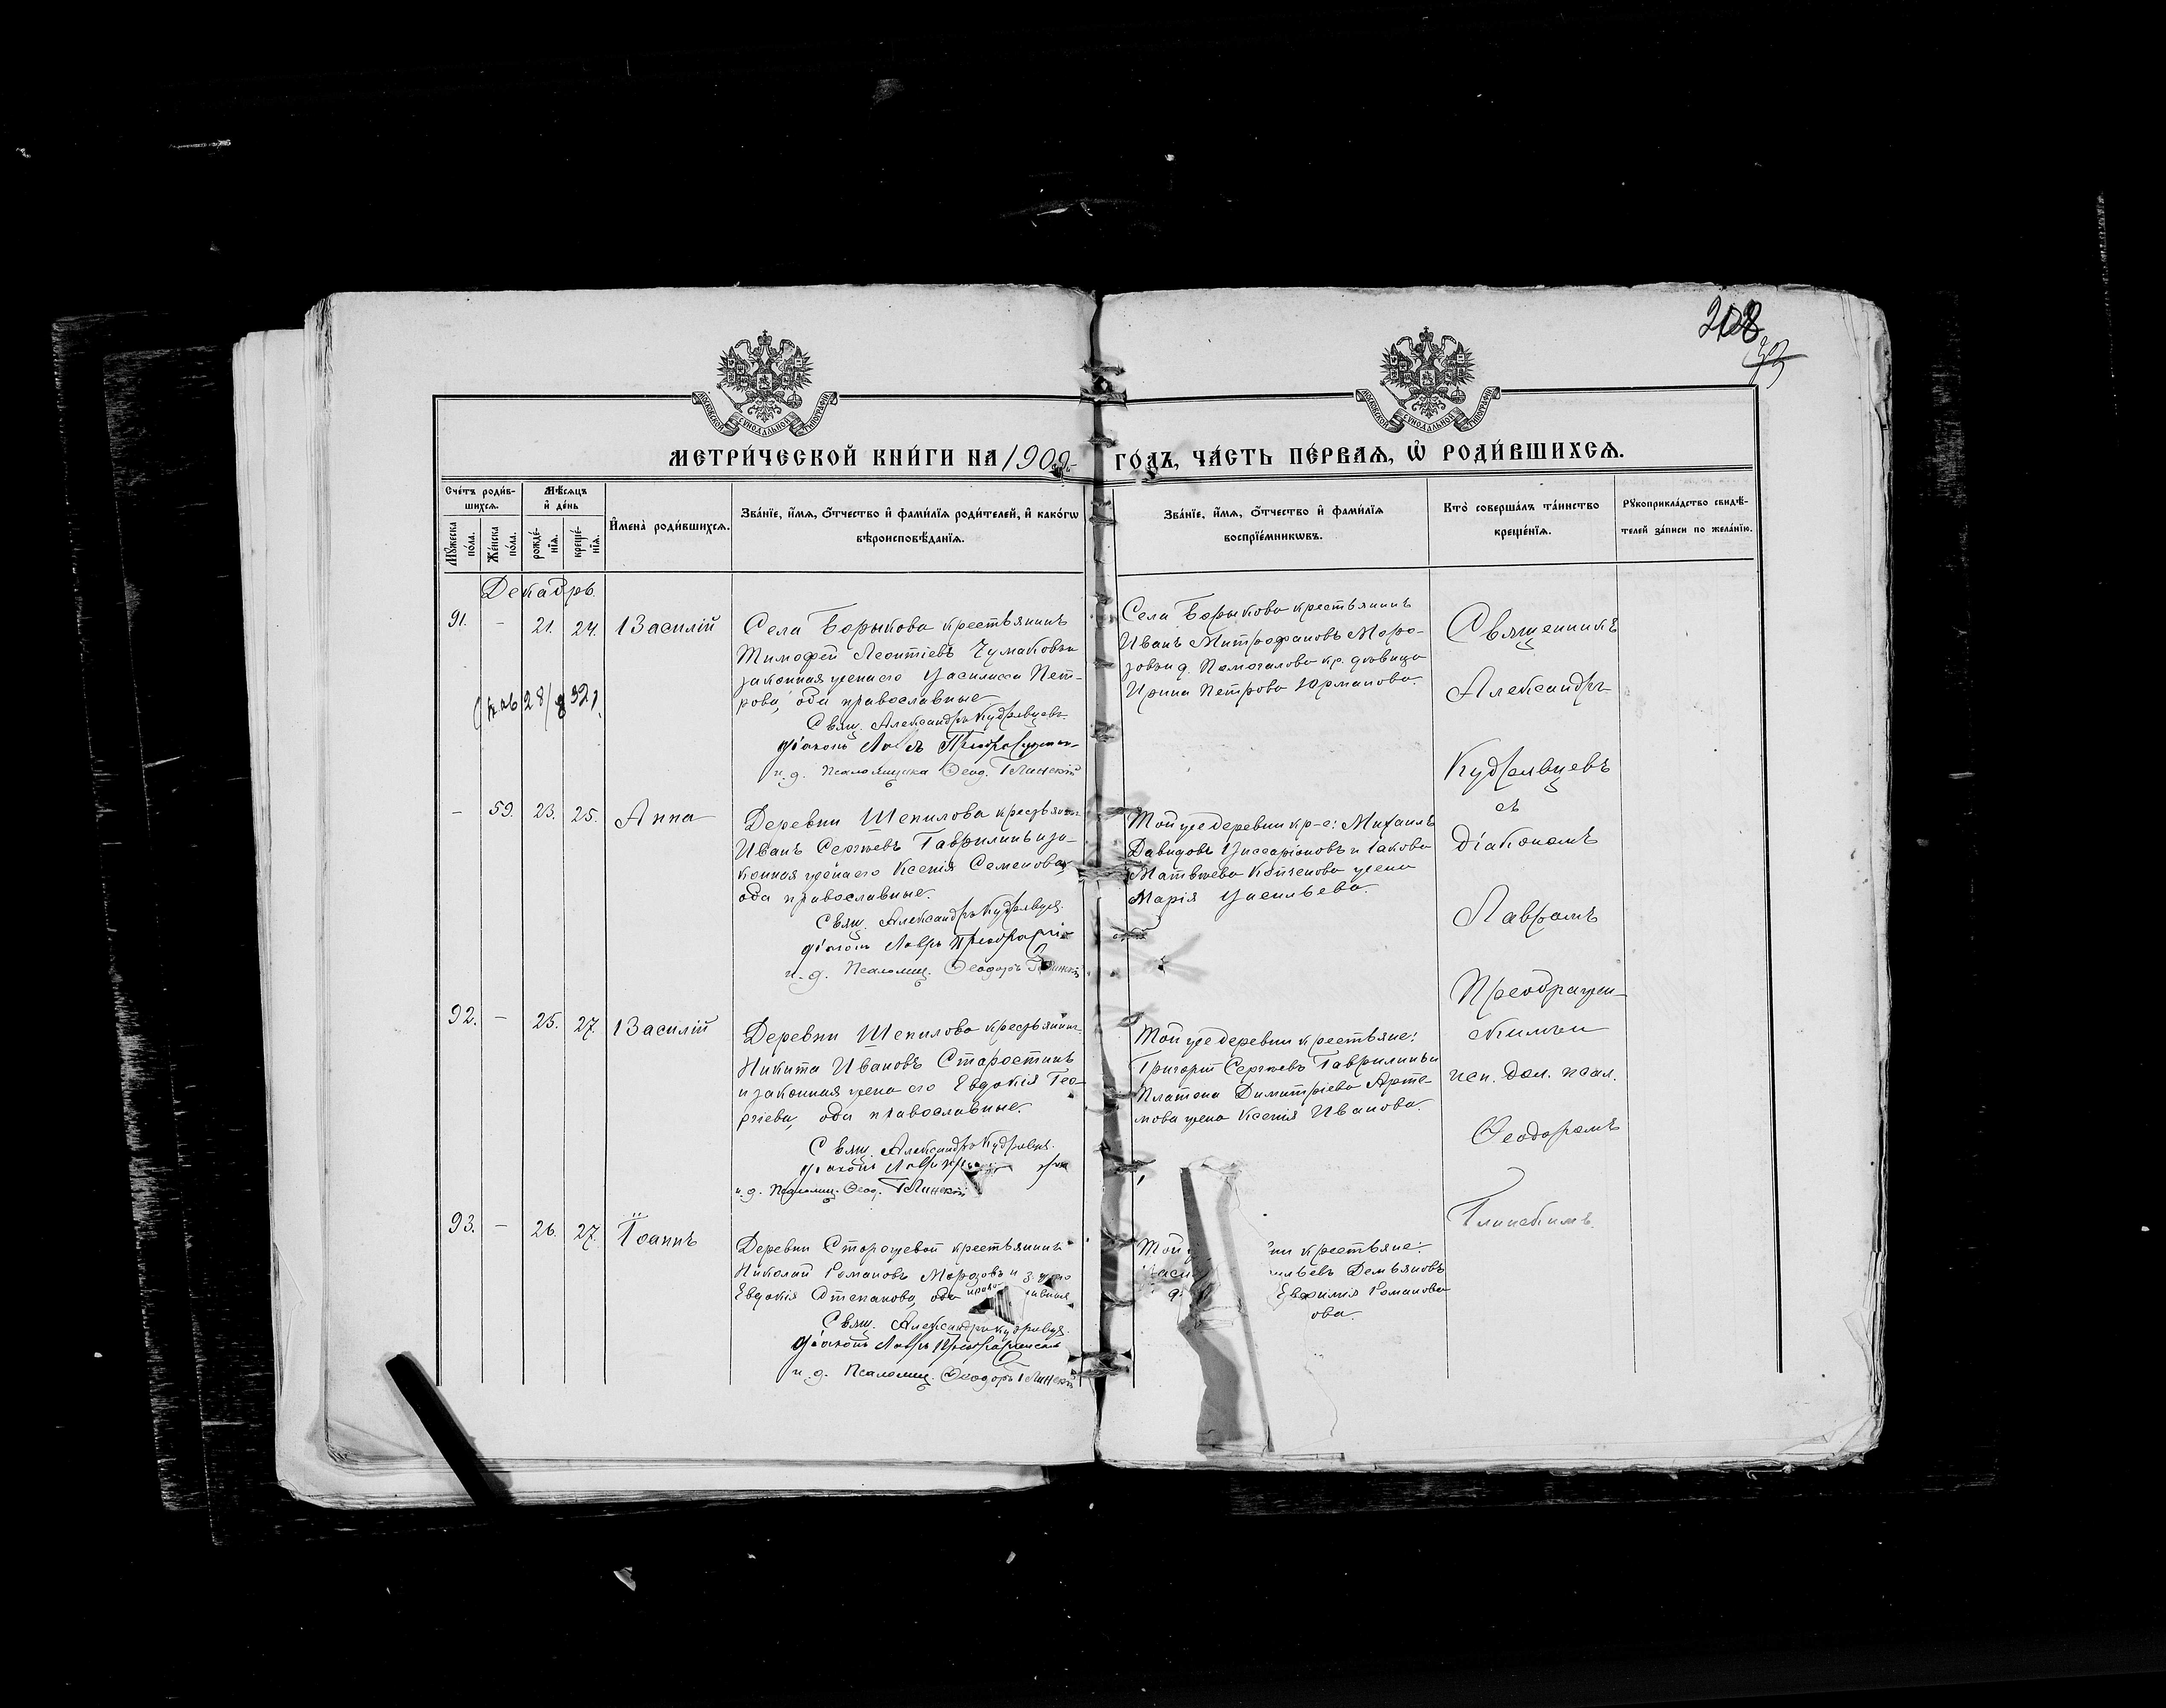 208
МОСКОВСКОЙ СѴНОДАЛЬНОЙ ТИПОГРАФІИ
МОСКОВСКОЙ СѴНОДАЛЬНОЙ ТИПОГРАФІИ
МЕТРИ́ЧЕСКОЙ КНИ́ГИ НА 1909 ГО́ДЪ, ЧА́СТЬ ПЕ́РВАѦ, Ѡ҆ РОДИ́ВШИХСѦ.
Сче́тъ роди́в-
шихсѧ.
Мꙋ́жеска по́ла.
Же́нска по́ла.
Мѣ́сѧцъ
и҆ де́нь
рожде́-
нїѧ.
креще́-
нїѧ.
И҆мена̀ роди́вшихсѧ.
Зва́нїе, и҆́мѧ, ѻ҆́тчество и҆ фами́лїѧ роди́телей, и҆ како́гѡ
вѣроисповѣ́данїѧ.
Зва́нїе, и҆́мѧ, ѻ҆́тчество и҆ фами́лїѧ
воспрїе́мникѡвъ.
Кто̀ соверша́лъ та́инство
креще́нїѧ.
Рꙋкоприкла́дство свидѣ́-
телей за́писи по жела́нїю.
Декабрь.
91. - 21. 24. Василій
Села Борыкова крестьянинъ
Тимофей Леонтіевъ Чумаковъ и
законная жена его Васалисса Пет-
рова, оба православные
Свящ. Александръ Кудрявцевъ.
діаконъ Лавръ Преображен-
и. д. Псаломщика Ѳеод. Глинскій
Села Борыкова крестьянинъ
Иванъ Митрофановъ Моро-
зовъ и д. Помогалова кр. дѣвица
Ирина Петрова Юрманова.
Священникъ
Александръ
Кудрявцевъ
съ
діакономъ
Лавромъ
Преображен-
скимъ и
исп. дол. псал.
Ѳеодоромъ
Глинскимъ.
- 59. 23. 25. Анна
Деревни Шепилова крестьянинъ
Иванъ Сергѣевъ Гаврилинъ и за-
конная жена его Ксенія Семенова,
оба православные.
Свящ. Александръ Кудрявцев.
діаконъ Лавръ
и. д. Псаломщ. Ѳеодоръ Глинскій
Той же деревни кр-е: Михаилъ
Давидовъ Виссаріоновъ и Іакова
Матвѣева жена
Марія Васильева.
92. - 25. 27. Василій
Деревни Шепилова крестьянинъ
Никита Ивановъ Старостинъ
и законная жена его Евдокія Гео-
ргіева, оба православные.
Свящ. Александръ Кудрявцев.
діаконъ Лавръ
и. д. Псаломщ. Ѳеод. Глинскій
Той же деревни крестьяне:
Григорій Сергѣевъ Гаврилинъ и
Платона Димитріева Арте-
мова жена Ксенія Иванова.
93. - 26. 27. Іоаннъ
Деревни Сторожевой крестьянинъ
Николай Романовъ Морозовъ и з. жена
Евдокія Степанова, оба
Свящ. Александръ Кудрявцев.
діаконъ Лавръ Преображенскій
и. д. Псаломщ. Ѳеодоръ Глинскій
Той крестьяне:
Демьяновъ
Евфимія Романова
ова.